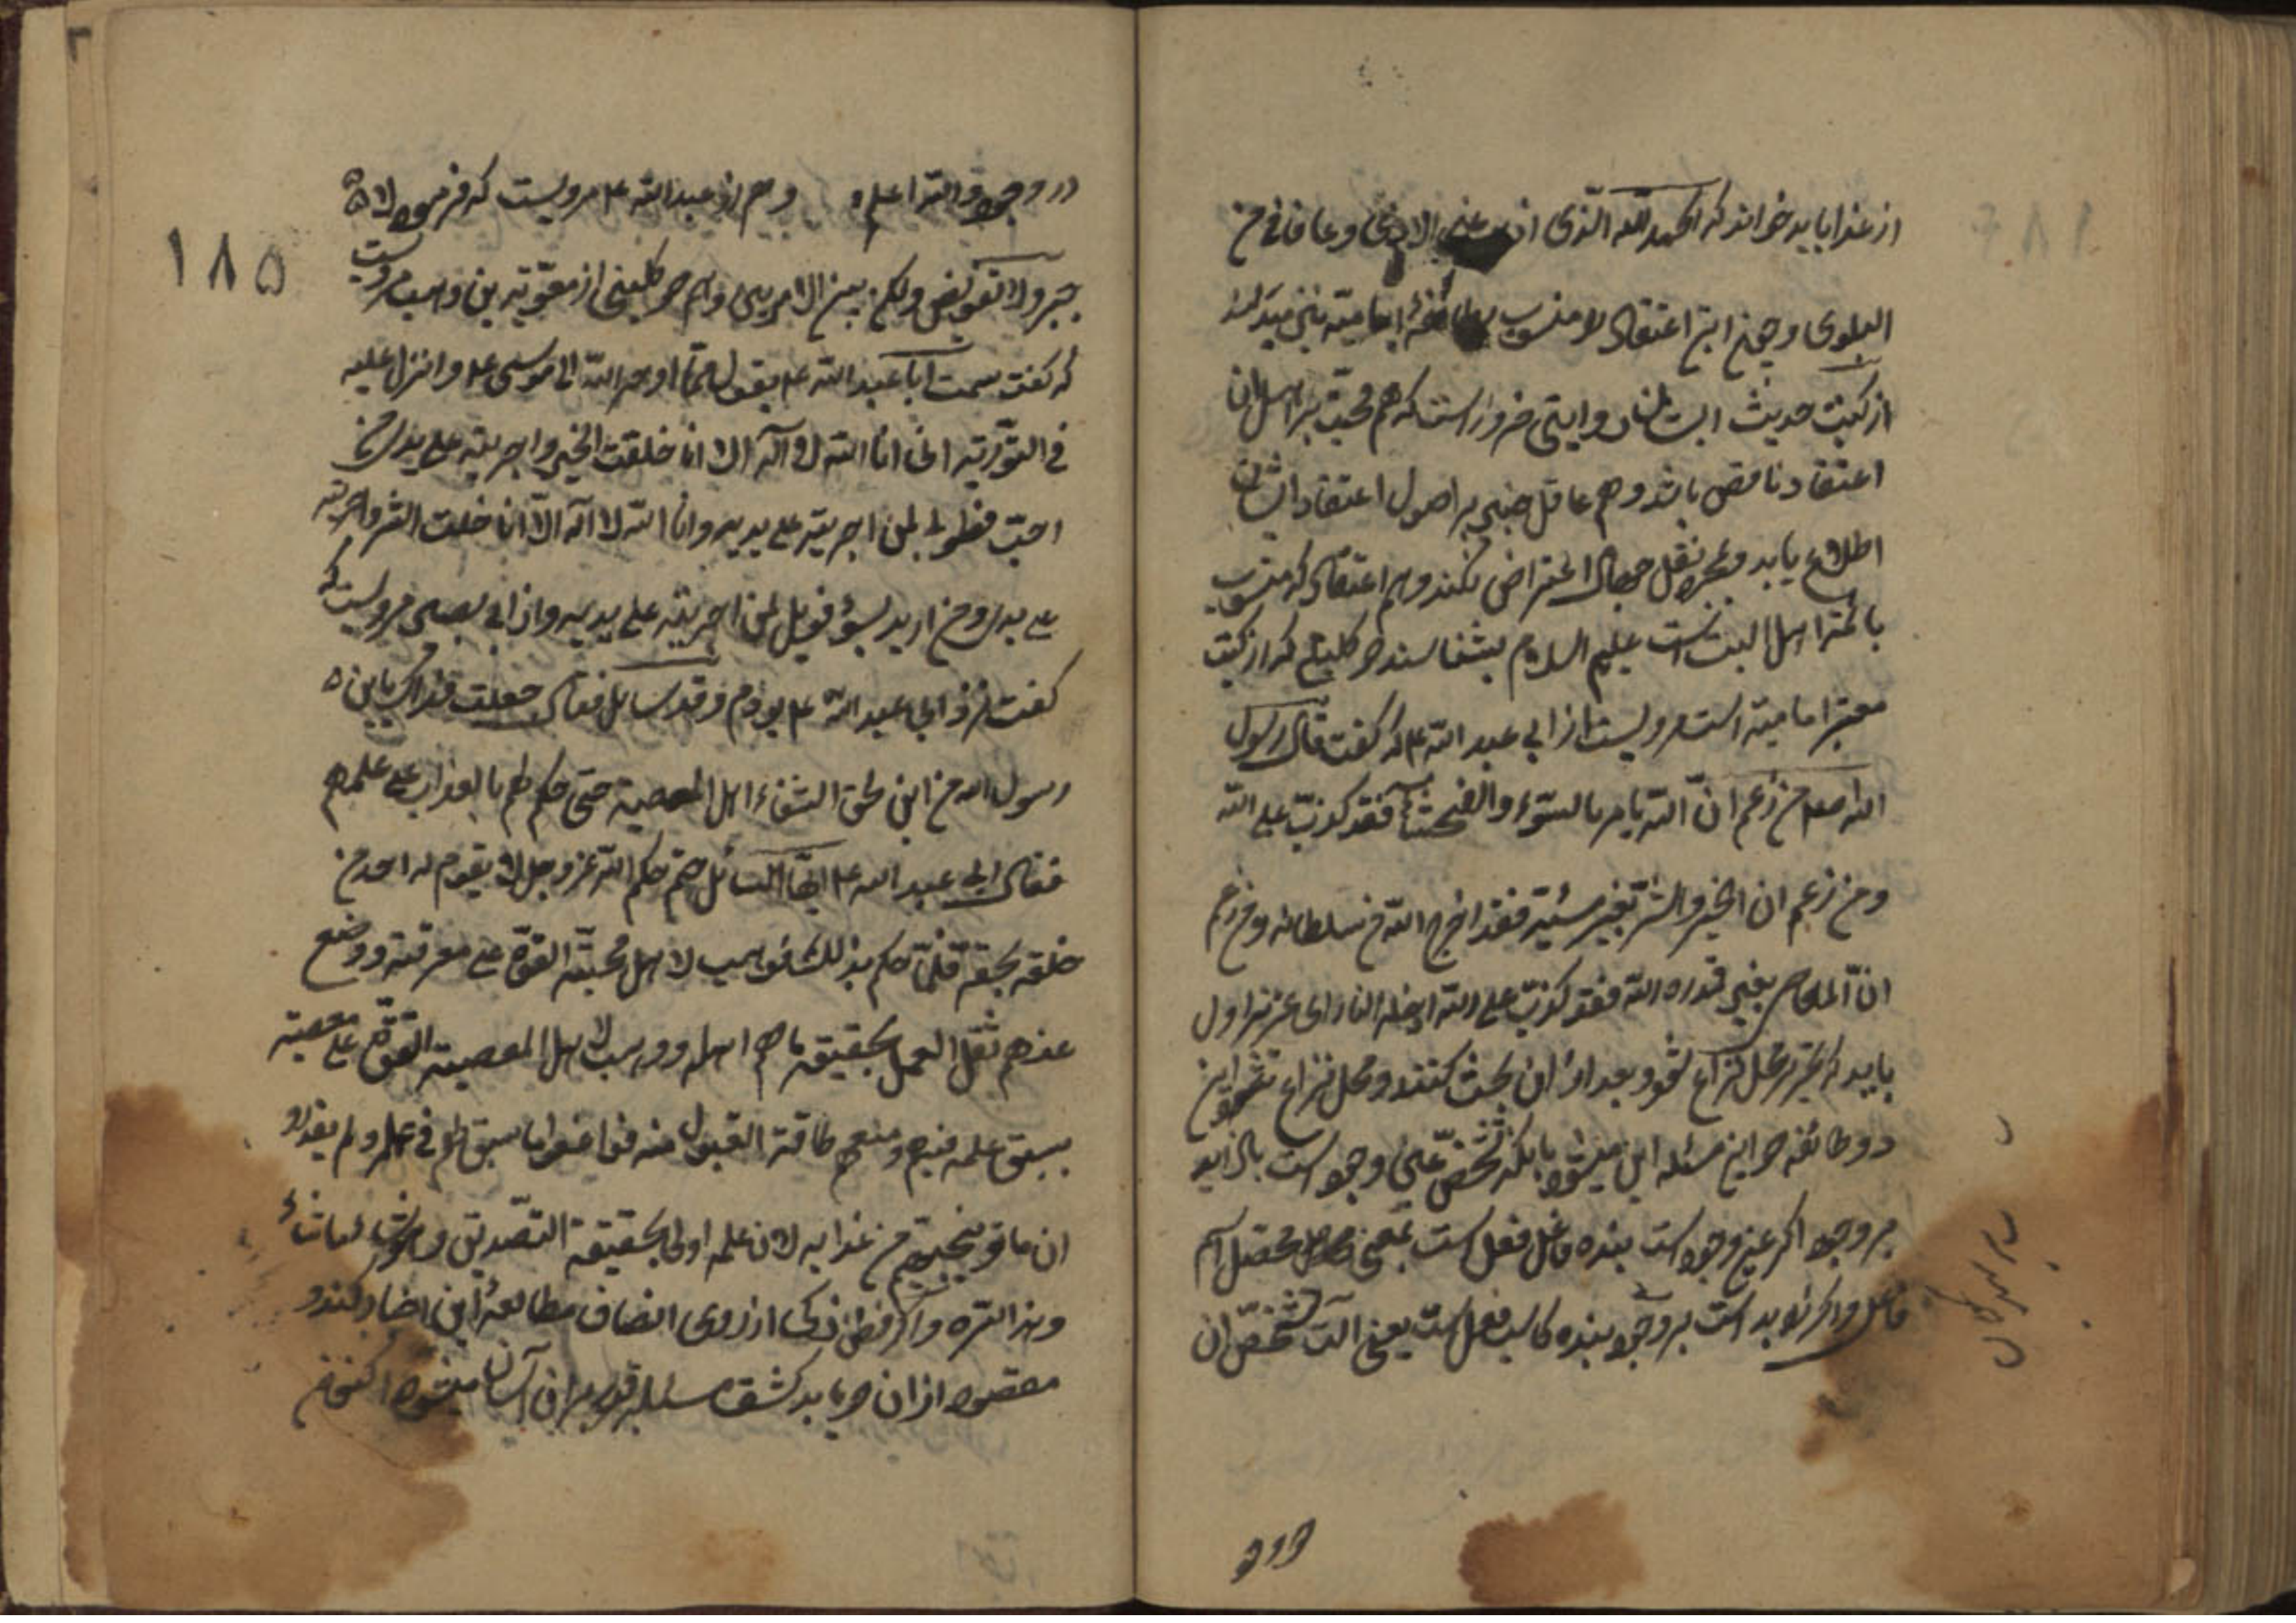 از عذابا باید خواند که الحمد لله الذی وعافانی من
البلوی و چون این اعتقاد را منسوب امامیه
از کتب حدیث ایشان و این ضرور است که هم محبت بر اهل آن
اعتقاد ناقص باشد و هم عاقل برا صول اعتقاد ایشان
اطلاع یابد و بمجرد نقل اعتراض نکند و هم اعتقاد که منسوب
بائمه اهل البیت است علیهم السلام بشناسد در کلینی که از کتب
معتبر امامیه است مرویست از ابی عبد الله ع که گفت قال رسول
الله صلعم من زعم ان الله یامر بالسوء و الفحشاء فقد کذب علی الله
ومن زعم ان الخیر والشر بغیر مشیة فقد اخرج الله من سلطانه ومن زعم
ان المعاصی بغیر قدره الله فقد کذب علی الله ادخله النار ای عزیز اول
باید که تحریر محل نزاع شود بعد ازان بحث کنند و محل نزاع این
دو طائفه در این مسئله این میشود بانکه تشخص عین وجود است یا زاید
بر وجود اگر عین وجود است بنده فاعل فعل است یعنی محصل اسم
فاعل و اگر زاید است بر وجود بنده کاسب فعل است یعنی آلت تشخص ان
در وجود والله اعلم و هم از عبد الله ع مرویست که فرمود لا
جبر ولا تفویض ولکن بین الامرین و هم در کلینی از معویة بن وهب مرویست
که گفت سمعت ابا عبد الله ع یقول مما اوحی الله الی موسی ع و انزل علیه
فی التوریة انی انا الله لا آله الا انا خلقت الخیر و اجریته علی یدی من
احب فطوبی لمن اجریته علی یدیه وانا الله لا اله الا انا خلقت الشر واجریته
علی یدی من ارید بسوء فویل لمن اجریته علی یدیه و از ابی بصیر مرویست که
گفت نزد ابی عبد الله ع بودم و قد سایل فقال جعلت فداک یابن
رسول الله من این لحق الشقاء اهل المعصیة حتی حکم لهم بالعذاب علی علمهم
فقال ابی عبد الله ع ایها السائل حکم الله عز وجل لا یقوم له احد من
خلقه بحقه فلما حکم بذلک وهب لاهل محبته القوة علی معرفته ووضع
عنهم ثقل العمل بحقیقه ما هم اهله ووهب لاهل المعصیة القوة علی معصیته
بسبق علمه فیهم ومنعهم طاقة القبول منه فواقعوا ما سبق لهم فی علمه ولم یقدروا
ان یاتو من عذابه لان علمه اولی بحقیقة التصدیق وهو
وهذا سره و اگر فطن ذکی از روی انصاف مطالعه این اخبار کند و
مقصود ازان دریابد کشف مسئله قدر بران آسان میشود اکنون
۱۸۵
درو